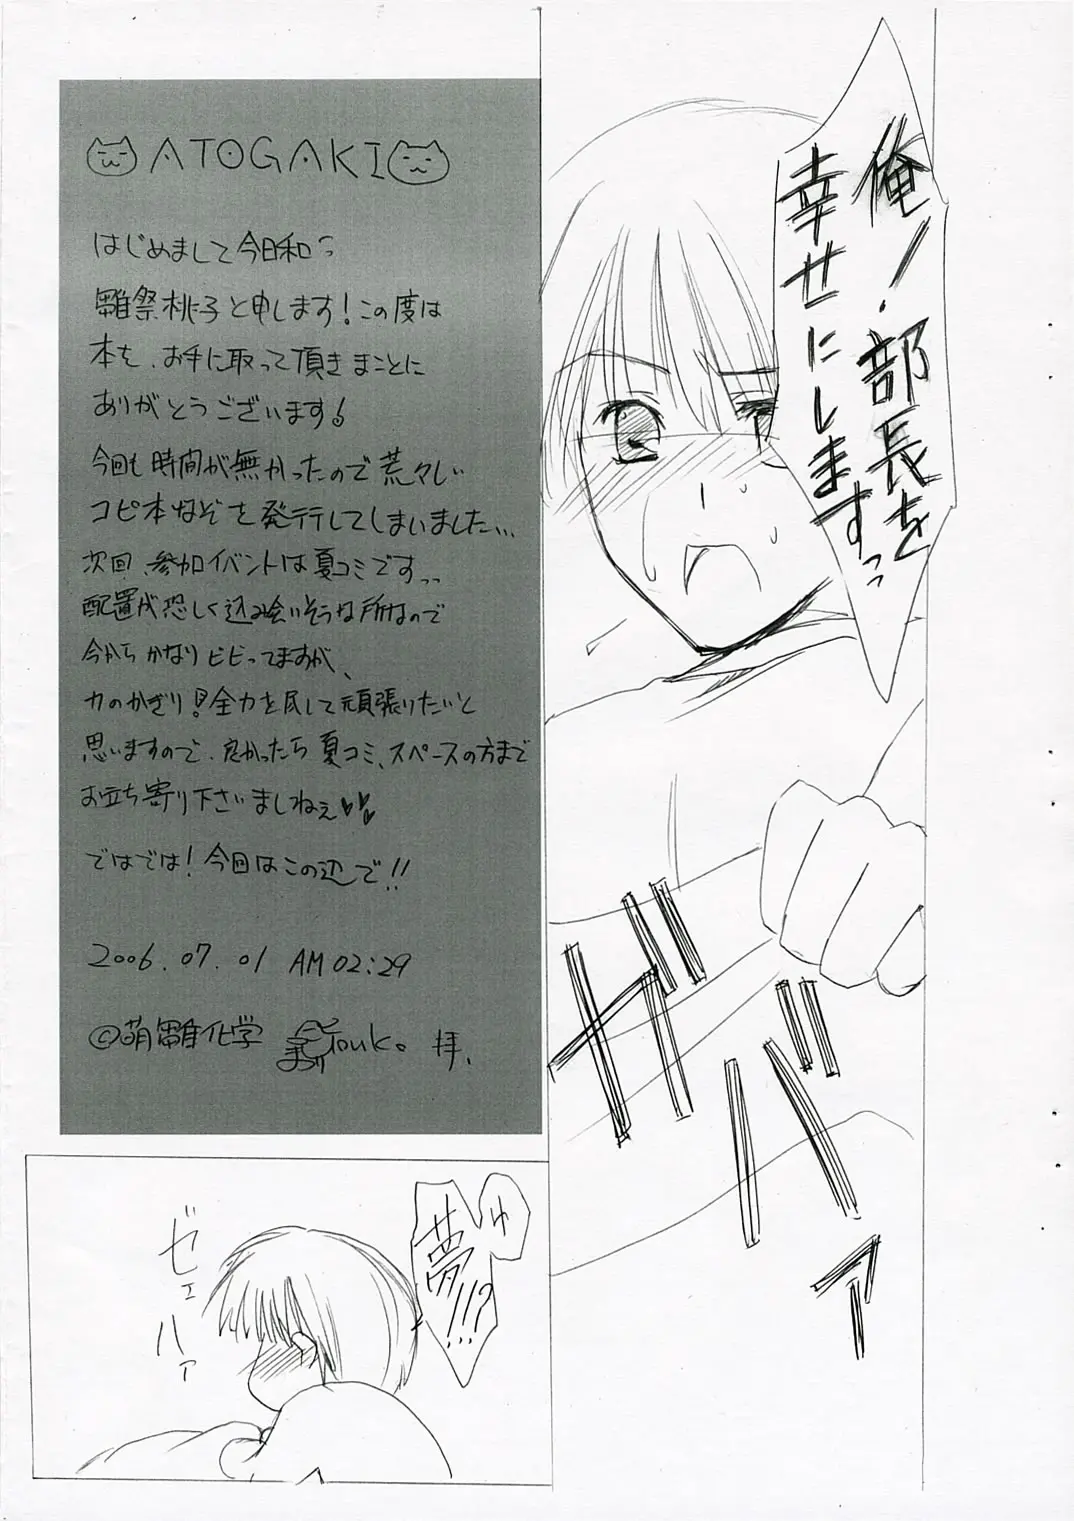 俺ッ!部長を
幸せにしますっっ
ガバァ
ゆ
夢!!!?
ゼェ
ハァ
ATOGAKI
はじめまして今日和っ
雛祭桃子と申します!この度は
本を、お手に取って頂きまことに
ありがとうございます!
今回も時間が無かったので荒々しい
コピ本なぞを発行してしまいました…
次回、参加イベントは夏コミですっっ
配置が恐しく込み会いそうな所なので
今からかなりビビってますが、
力のかぎり!全力を尽して頑張りたいと
思いますので、良かったら夏コミ、スペースの方まで
お立ち寄り下さいましねぇ♥♥
ではでは!今回はこの辺で!!
2006.07.01 AM02:29
©萌雛化学 touko。拝、